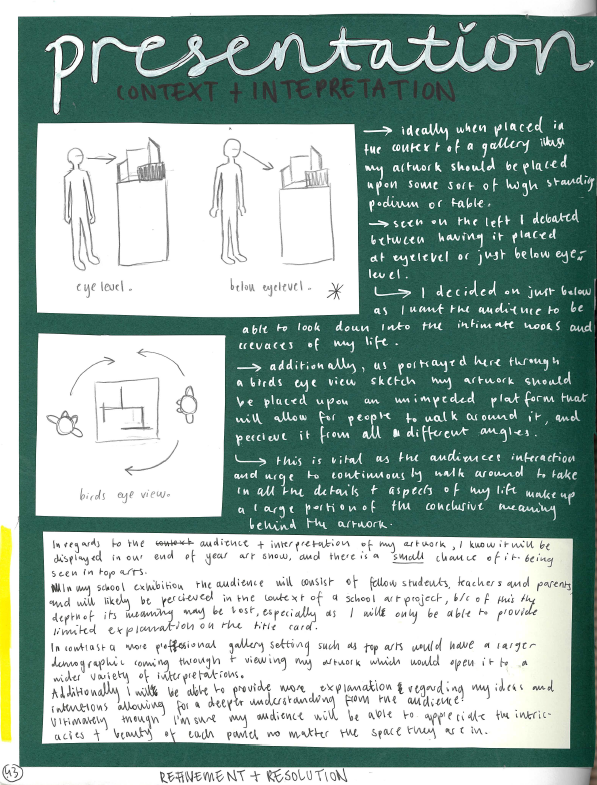 presentation
CONTEXT + INTEPRETATION
→ ideally when placed in
the context of a gallery
my artwork should be placed
upon some sort of high standing
podium or table.
→ seen on the left I debated
between having it placed
at eyelevel or just below eye-
level.
↳ I decided on just below
as I want the audience to be
able to look down into the intimate nooks and
crevaces of my life.
eye level.
below eyelevel.
→ additionally, as portrayed here through
a birds eye view sketch my artwork should
be placed upon an unimpeded platform that
will allow for people to walk around it, and
percieve it from all different angles.
↳ this is vital as the audiences interaction
and urge to continuously walk around to take
in all the details + aspects of my life make up
a large portion of the conclusive meaning
behind the artwork.
birds eye view.
In regards to the context audience + interpretation of my artwork, I know it will be
displayed in our end of year art show, and there is a small chance of it being
seen in top arts.
In my school exhibition the audience will consist of fellow students, teachers and parents
and will likely be percieved in the context of a school art project, b/c of this the
depth of its meaning may be lost, especially as I will only be able to provide
limited explanation on the title card.
In contrast a more proffesional gallery setting such as top arts would have a larger
demographic coming through + viewing my artwork which would open it to a
wider variety of interpretations.
Additionally I will be able to provide more explanation regarding my ideas and
intentions allowing for a deeper understanding from the audience.
Ultimately though, I'm sure my audience will be able to appreciate the intric-
acies + beauty of each panel no matter the space they are in.
43
REFINEMENT + RESOLUTION